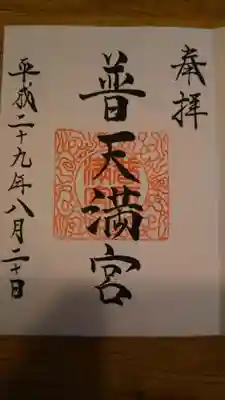 奉拝
普天満宮
平成二十九年八月二十日